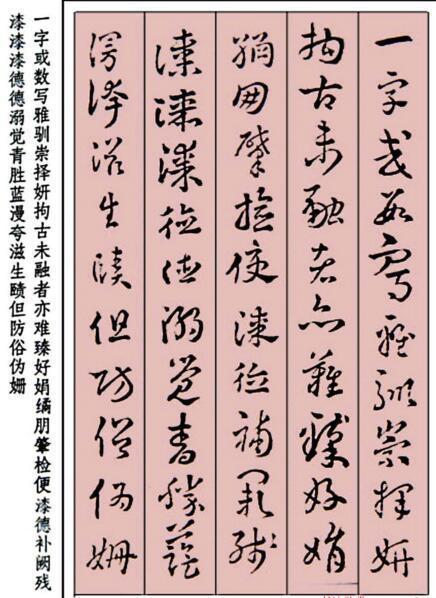 一字或数写雅驯崇择妍
拘古未融者亦难臻好娟
缡朋肇检便漆德补阙残
漆漆漆德德溺觉青胜蓝
漫夸滋生赜但防俗伪姗
一字或数写雅驯崇择妍拘古未融者亦难臻好娟缡朋肇检便漆德补阙残
漆漆漆德德溺觉青胜蓝漫夸滋生赜但防俗伪姗